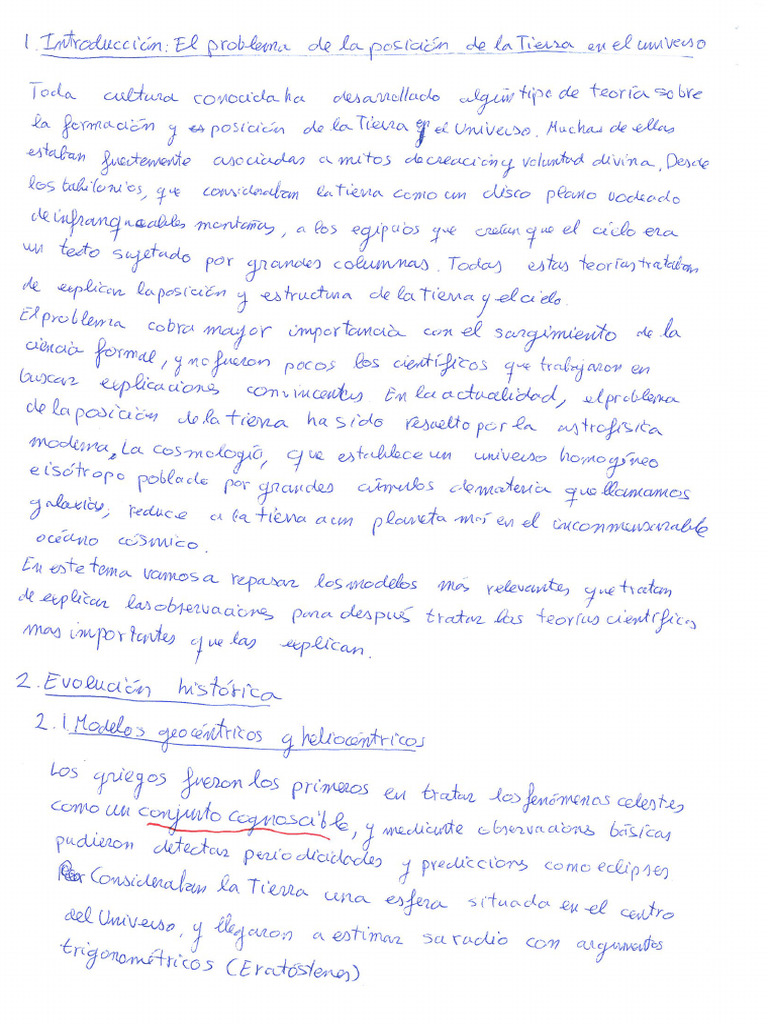 1. Introducción: El problema de la posición de la Tierra en el universo
Toda cultura conocida ha desarrollado algún tipo de teoría sobre
la formación y posición de la Tierra y el Universo. Muchas de ellas
estaban fuertemente asociadas a mitos de creación y voluntad divina. Desde
los babilonios, que consideraban la tierra como un disco plano rodeado
de infranqueables montañas, a los egipcios que creían que el cielo era
un testo sujetado por grandes columnas. Todas estas teorías trataban
de explicar la posición y estructura de la Tierra y el cielo.
El problema cobra mayor importancia con el surgimiento de la
ciencia formal, y no fueron pocos los científicos que trabajaron en
buscar explicaciones convincentes. En la actualidad, el problema
de la posición de la tierra ha sido resuelto por la astrofísica
moderna. La cosmología, que establece un universo homogéneo
e isótropo poblado por grandes cúmulos de materia que llamamos
galaxias, reduce a la tierra a un planeta más en el inconmensurable
océano cósmico.
En este tema vamos a repasar los modelos más relevantes que tratan
de explicar las observaciones para después tratar las teorías científicas
mas importantes que las explican.
2. Evolución histórica
2.1 Modelos geocéntricos y heliocéntricos
Los griegos fueron los primeros en tratar los fenómenos celestes
como un conjunto cognoscible, y mediante observaciones básicas
pudieron detectar periodicidades y predicciones como eclipses.
Consideraban la Tierra una esfera situada en el centro
del Universo, y llegaron a estimar su radio con argumentos
trigonométricos (Eratóstenes)